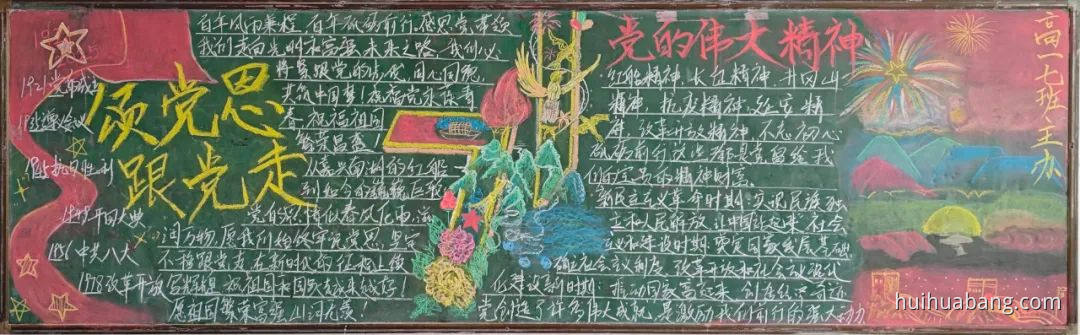 颂党恩
跟党走
1921党成立
1935遵义会议
1945抗日胜利
1949开国大典
1956中共八大
1978改革开放
百年风雨兼程，百年砥砺前行，感恩党，带领
我们走向光明和富强，未来之路，我们必
将紧跟党的步伐，同心同德，
共筑中国梦！祝福党永葆青
春，祝福祖国
繁荣昌盛
从嘉兴南湖的红船
到如今的巍巍巨轮
党的恩情似春风化雨，滋
润万物，愿我们始终牢记党恩，坚定
不移跟党走，在新时代的征程上绽
祝祖国
愿祖国繁荣富强，山河无恙！
党的伟大精神
红船精神、长征精神、井冈山
精神、抗战精神、延安精
神、改革开放精神，不忘初心
砥砺前行，这些都是党留给我
们的宝贵的精神财富。
新民主主义革命时期：实现民族独
立和人民解放，让中国站起来，社会
主义和建设时期：奠定国家发展基础
确立社会主义制度，改革开放和社会主义现代
化建设新时期：推动国家富起来，创造经济奇迹
党创造了许多伟大成就，是激励我们前行的强大动力
高一七班主办
huihuabang.com